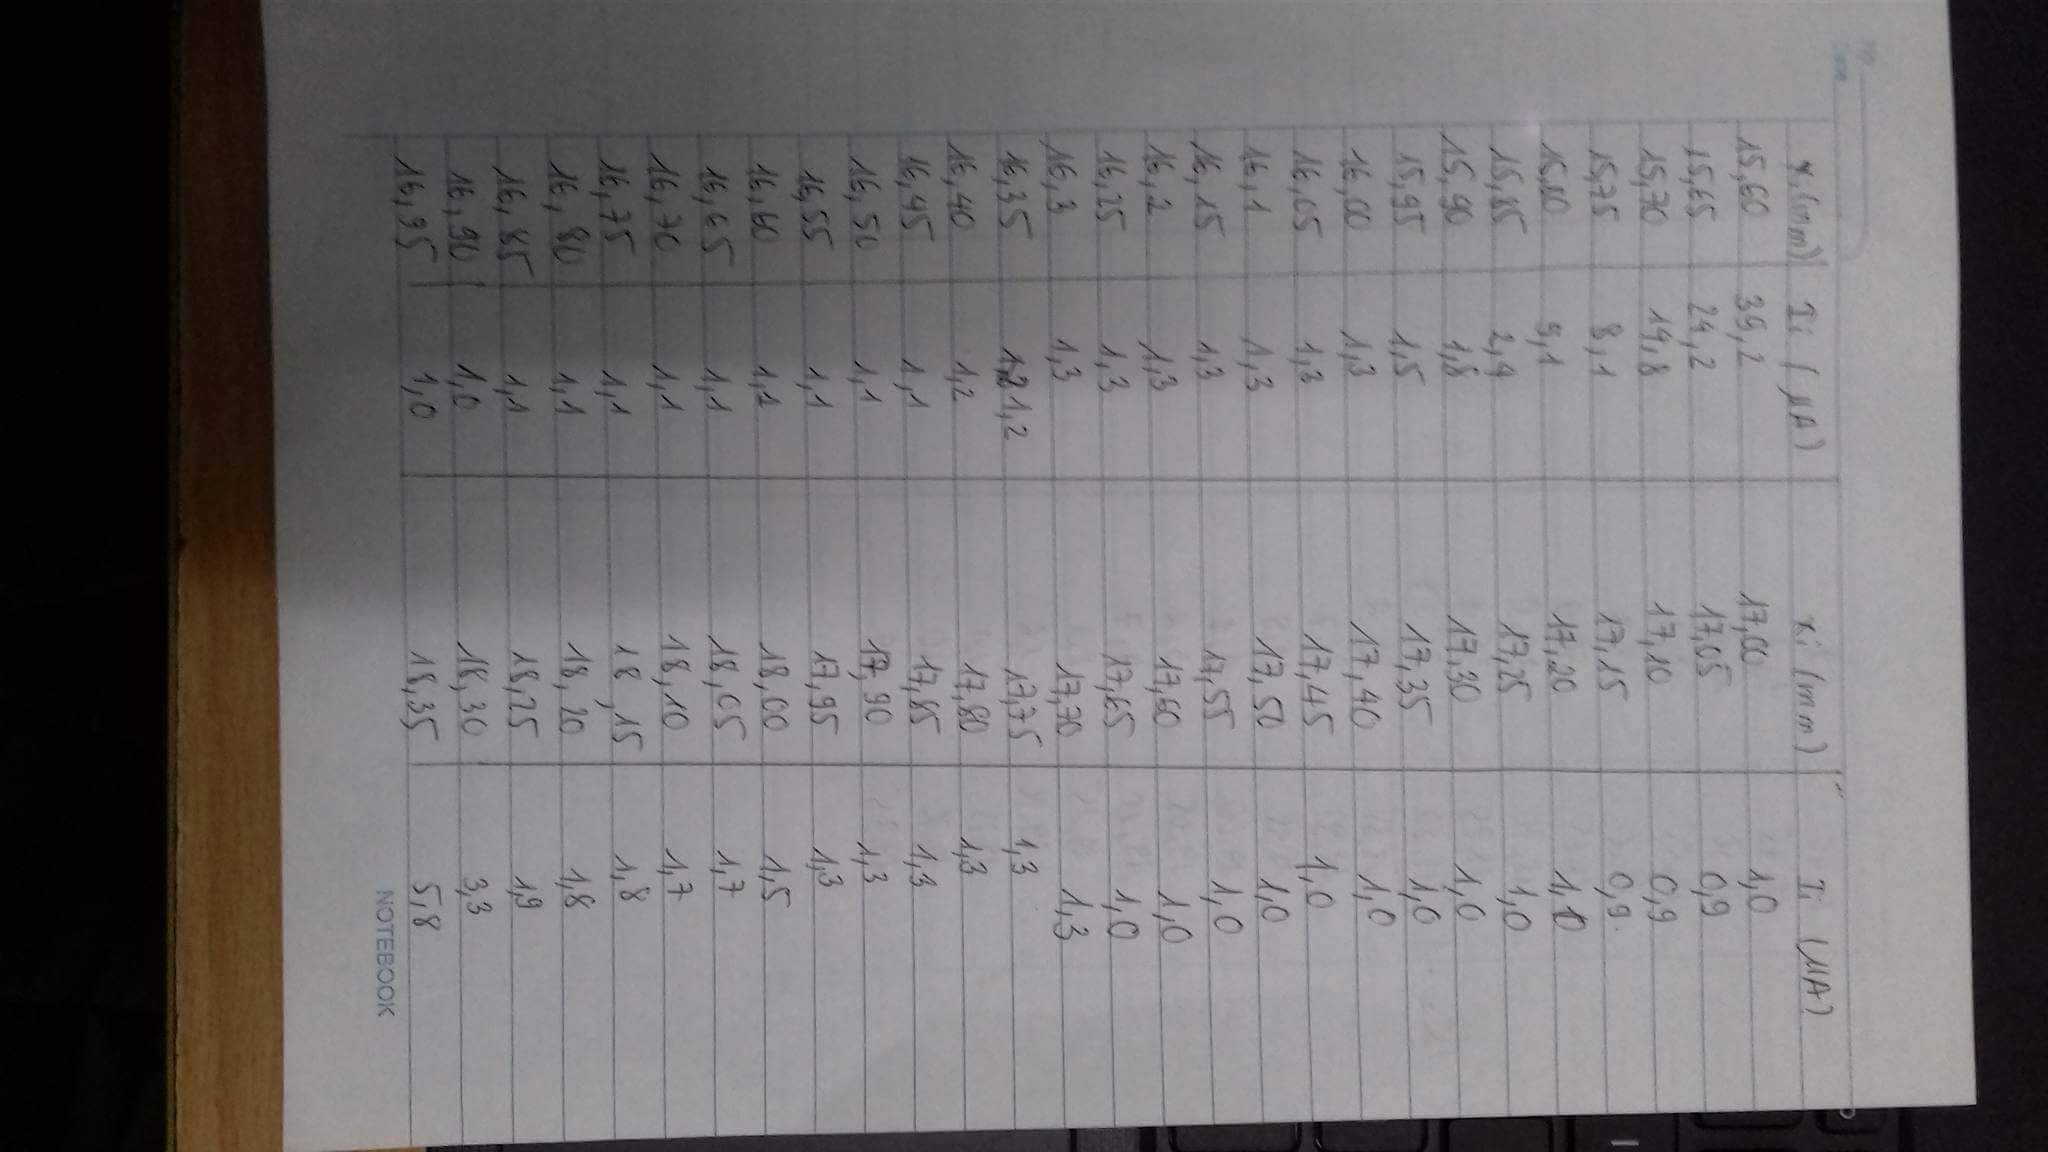 No
Date
xi (mm) Ii (μA) xi (mm) Ii (μA)
15,60 39,2 17,00 1,0
15,65 24,2 17,05 0,9
15,70 14,8 17,10 0,9
15,75 8,1 17,15 0,9
15,80 5,1 17,20 1,0
15,85 2,4 17,25 1,0
15,90 1,8 17,30 1,0
15,95 1,5 17,35 1,0
16,00 1,3 17,40 1,0
16,05 1,3 17,45 1,0
16,1 1,3 17,50 1,0
16,15 1,3 17,55 1,0
16,2 1,3 17,60 1,0
16,25 1,3 17,65 1,0
16,3 1,3 17,70 1,3
16,35 1,2 17,75 1,3
16,40 1,2 17,80 1,3
16,45 1,1 17,85 1,3
16,50 1,1 17,90 1,3
16,55 1,1 17,95 1,3
16,60 1,1 18,00 1,5
16,65 1,1 18,05 1,7
16,70 1,1 18,10 1,7
16,75 1,1 18,15 1,8
16,80 1,1 18,20 1,8
16,85 1,1 18,25 1,9
16,90 1,0 18,30 3,3
16,95 1,0 18,35 5,8
NOTEBOOK